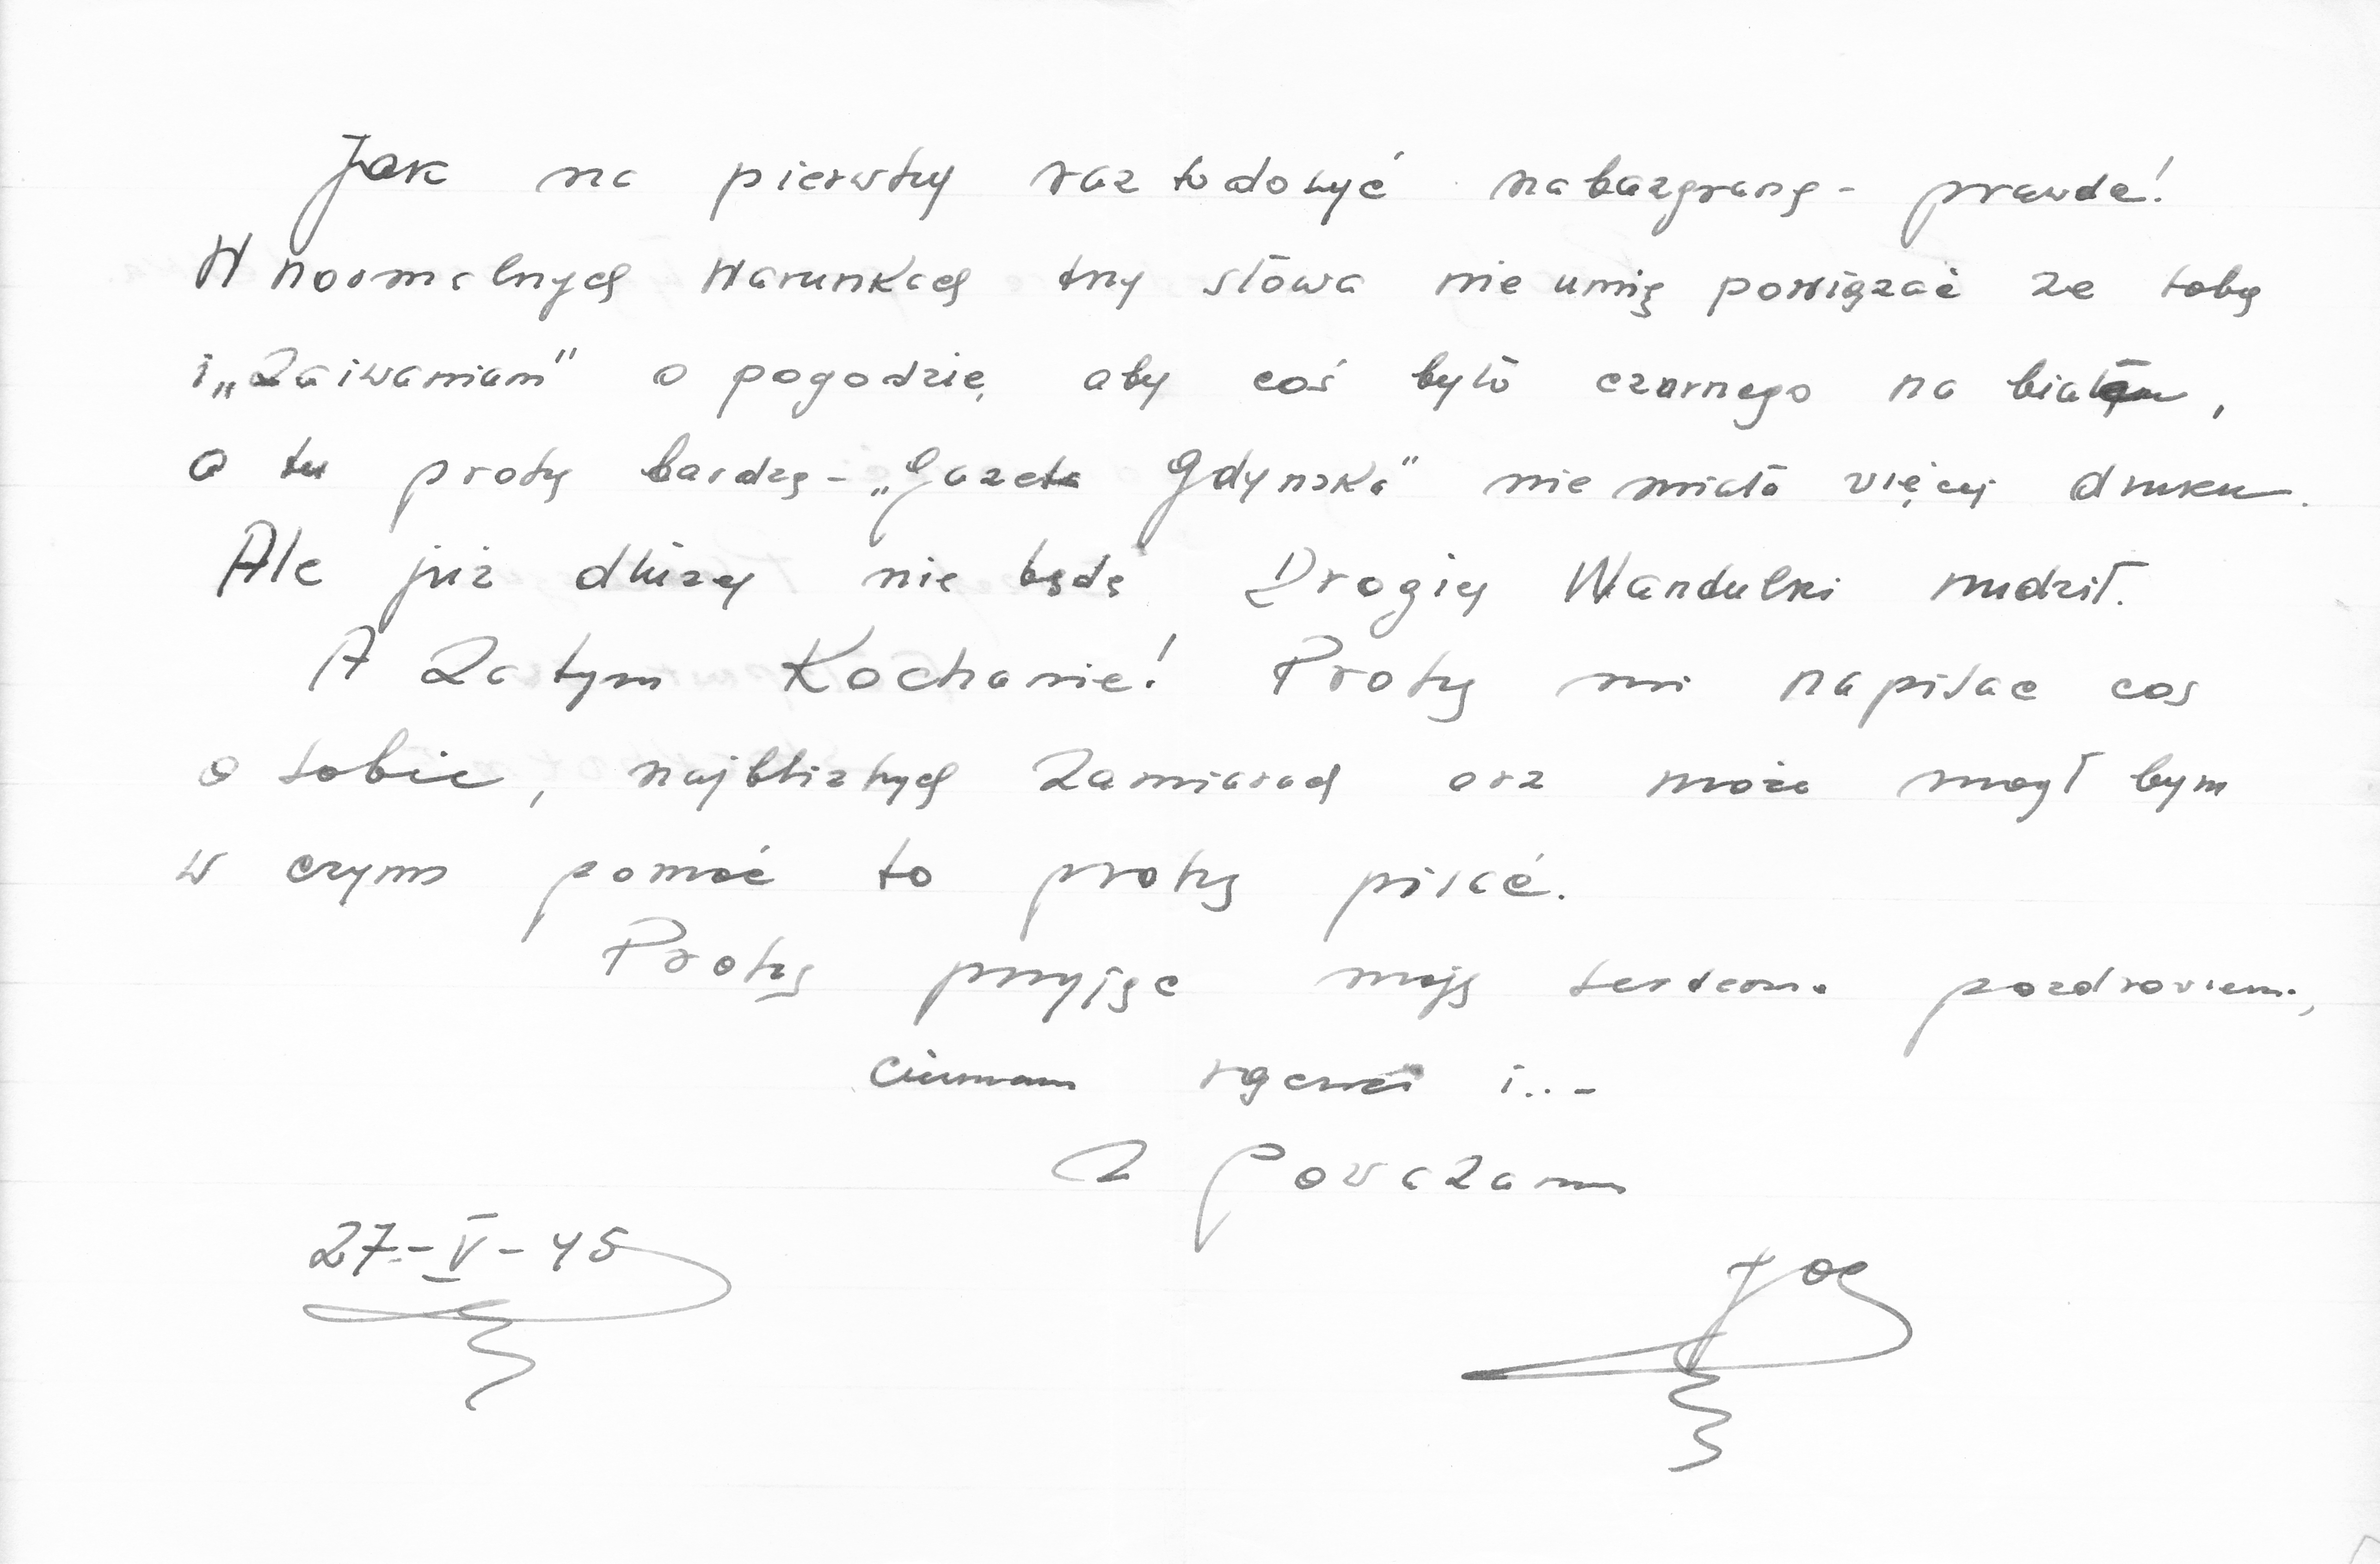 Jak na pierwszy raz to dosyć nabazgrang - prawda!
W normalnych warunkach trzy słowa nie umię powiązać ze sobą
i „Zaiwaniam" o pogodzie, aby coś było czarnego na białem,
a tu proszę bardzo - „Gazeta Gdyńska" nie miała więcej druku.
Ale już dłużej nie będę Drogiej Wandulki nudził.
A Zatym Kochanie! Proszę mi napisac cos
o sobie, najbliższych Zamiarach orz może mogł bym
w czyms pomóc to proszę pisać.
Proszę przyjąc moją serdeczne pozdrowienia,
rączki i... -
Z Poważaniem
27 - V - 45
Joe